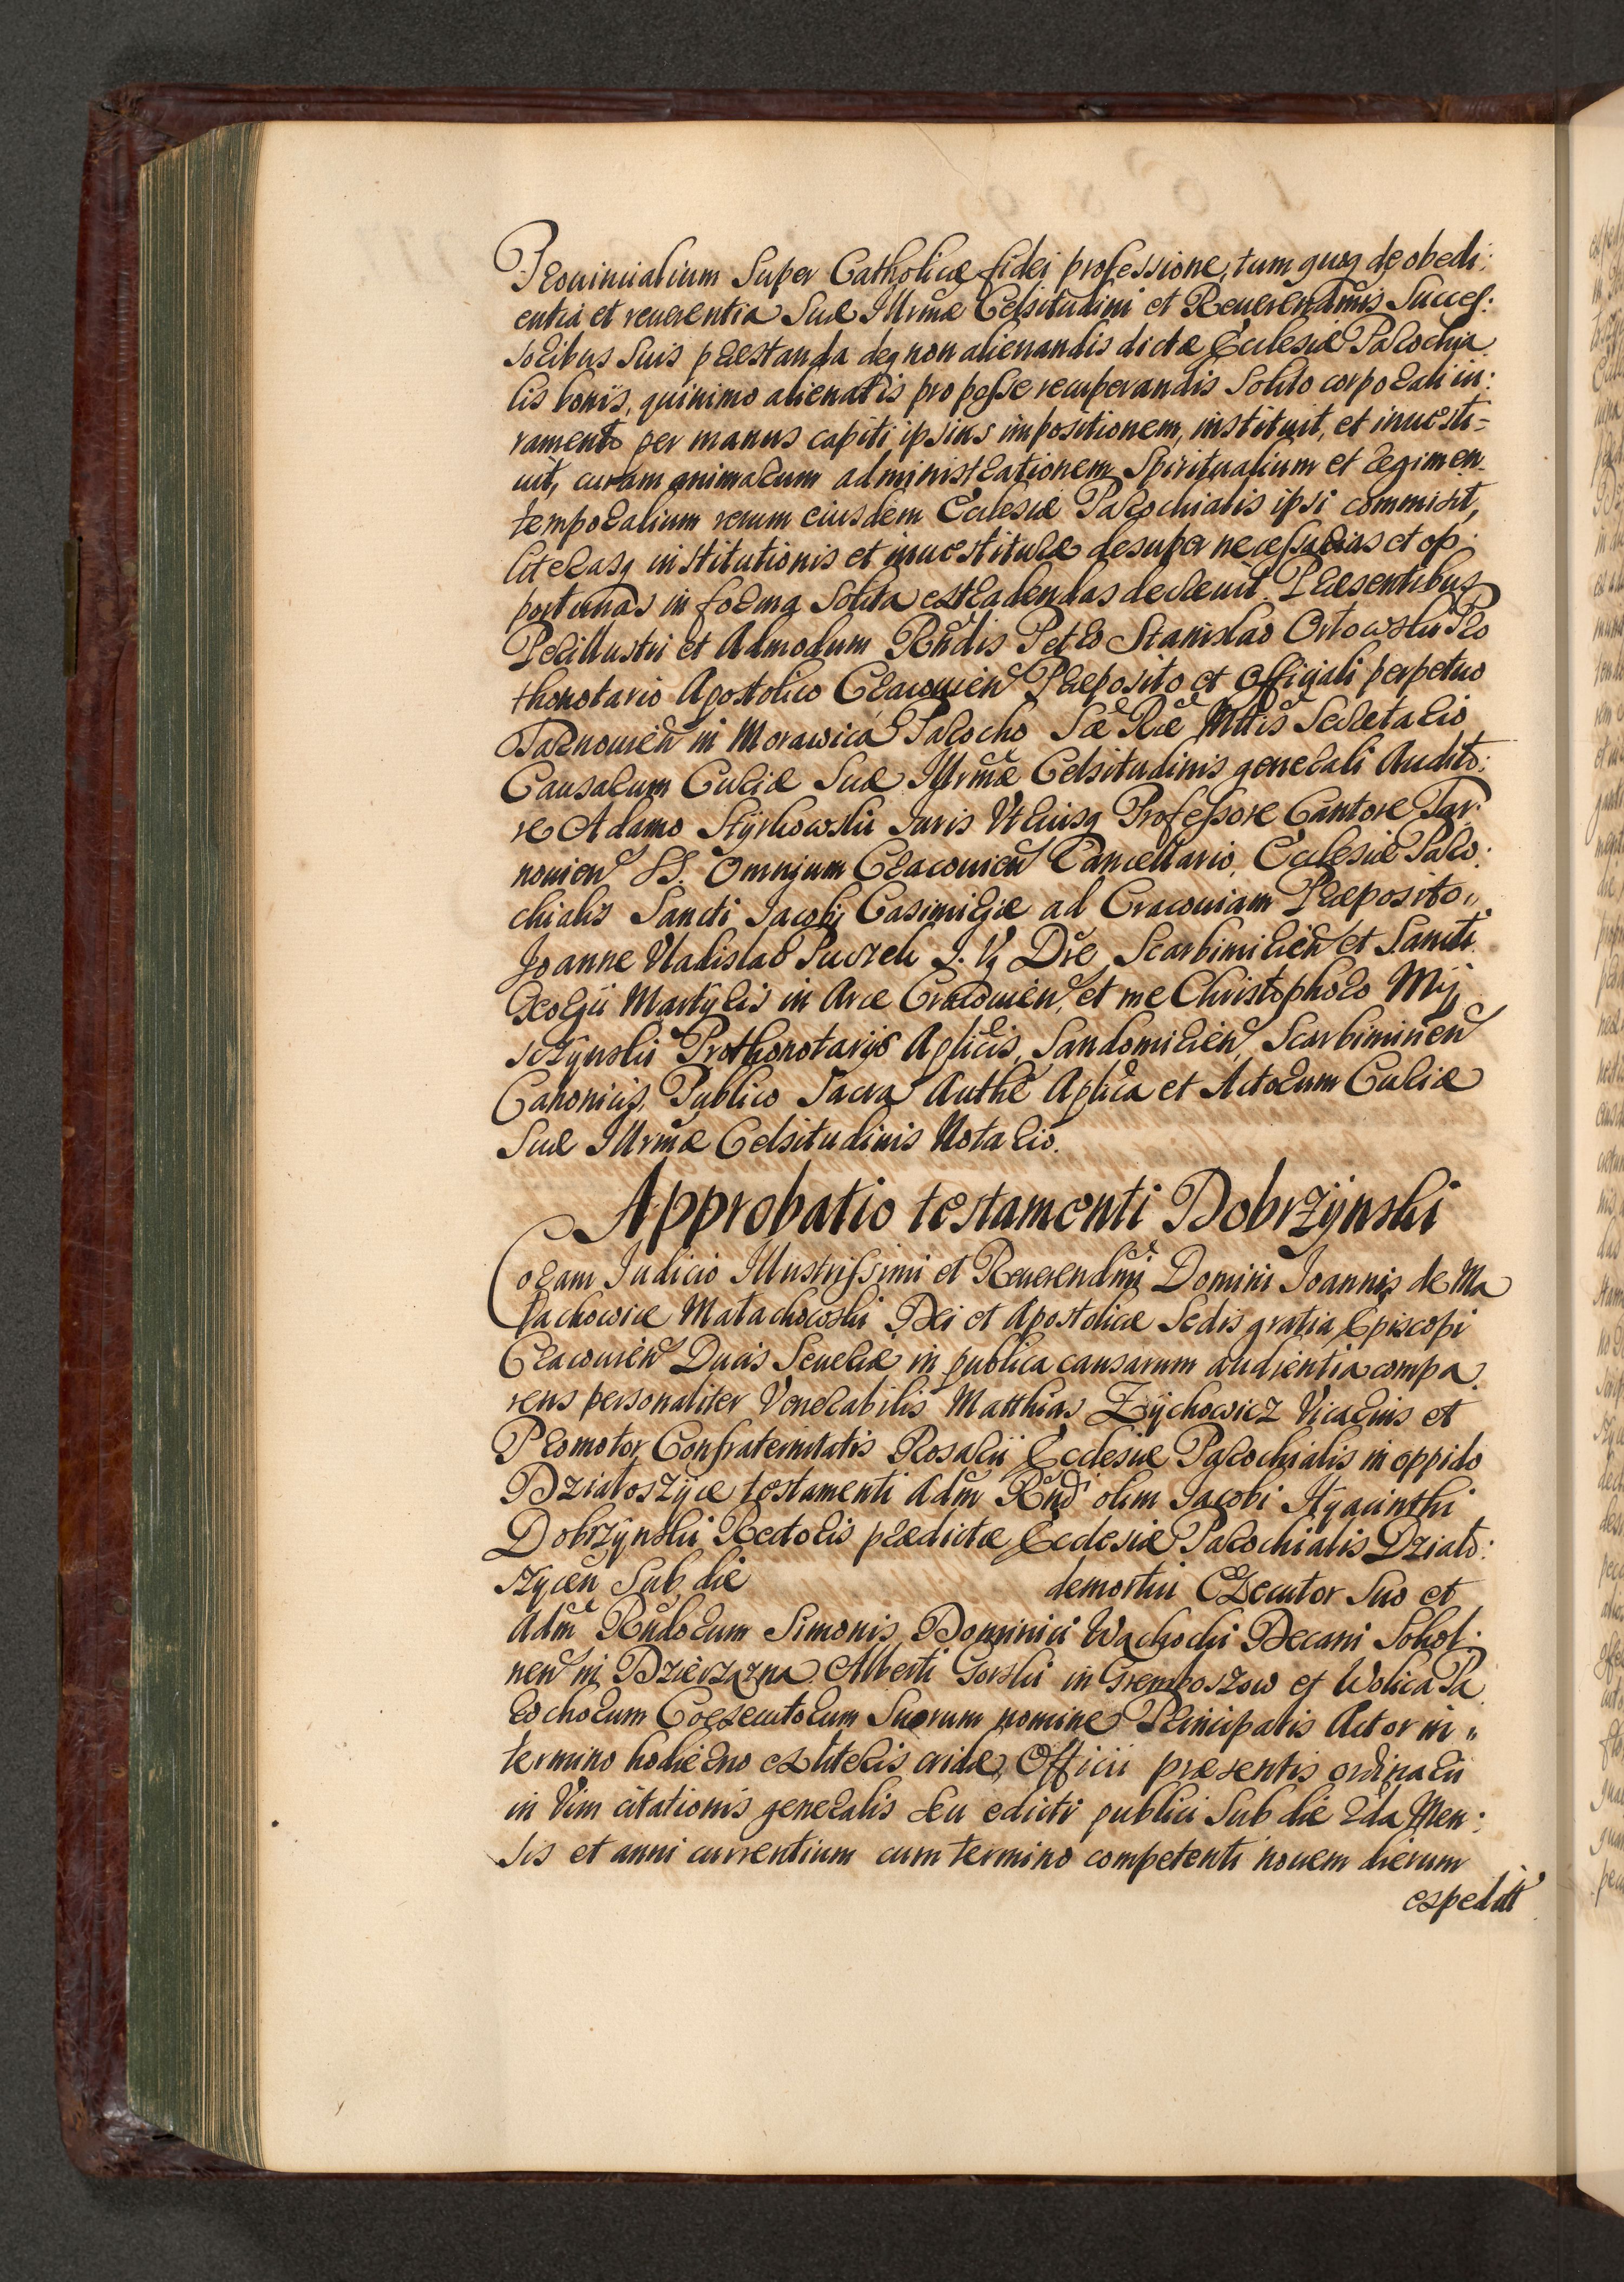 Prouincialium Super Catholicæ fidei professione, tum quoq de obedi:
entia et reuerentia Suæ Illrmæ Celsitudini et Reuerendmis Succes:
soribus Suis præstanda deq non alienandis dictæ Ecclesiæ Parochia
lis bonis, quinimo alienatis pro posse recuperandis Solito corporali iu:
ramento per manus capiti ipsius impositionem, instituit, et inuesti=
uit, curam animarum administrationem Spiritualium et regimen
temporalium rerum eiusdem Ecclesiæ Parochialis ipsi commisit,
literasq institutionis et inuestituræ desuper necessarias et op:
portunas in forma Solita extradendas decreuit. Præsentibus
Perillustri et Admodum Rndis Petro Stanislao Orłowski Pro
thonotario Apostolico Cracouien Præposito et Officiali perpetuo
Tarnouien in Morawica Parocho Sæ Ræ Mttis Secretario
Causarum Curiæ Suæ Illrmæ Celsitudinis generali Audito:
re Adamo Styrkowski Iuris Vtriusq Professore Cantore Tar:
nouien SS. Omnium Cracouien Cancellario, Ecclesiæ Paro:
chialis Sancti Jacobi Casimiriæ ad Cracouiam Præposito,,
Joanne Vladislao J. Vq Dre Scarbimirien et Sancti
Georgii Martyris in Arce Cracouien, et me Christophoro Mij
szynski Prothonotarijs Aplicis, Sandomirien, Scarbimirien
Canonicis, Publico Sacra Authe Aplica et Actorum Curiæ
Suæ Illrmæ Celsitudinis Notario.
Approbatio testamenti Dobrzÿnski
Coram Judicio Illustrissimi et Reuerendmi Domini Joannis de Ma
łachowice Małachowski Dei et Apostolicæ Sedis gratia Episcopi
Cracouien Ducis Seueriæ in publica causarum audientia compa
rens personaliter Venerabilis Matthias Zÿchowicz Vicarius et
Promotor Confraternitatis Rosarii Ecclesiæ Parochialis in oppido
Działoszÿce testamenti Adm Rndi olim Jacobi Hyacinthi
Dobrzynski Rectoris prædictæ Ecclesiæ Parochialis Działo:
szycen Sub die demortui Executor Suo et
Adm Rndorum Simonis Dominici Wachocki Decani Sokol:
nen in Dzierzazna Alberti Gorski in Gremboszow et Wolica Pa
rochorum Coexecutorum Suorum nomine Principalis Actor in,,
termino hodierno ex literis cridæ Officii præsentis ordinarii
in Vim citationis generalis Seu edicti publici Sub die 2da Men:
sis et anni currentium cum termino competenti nouem dierum
expedit